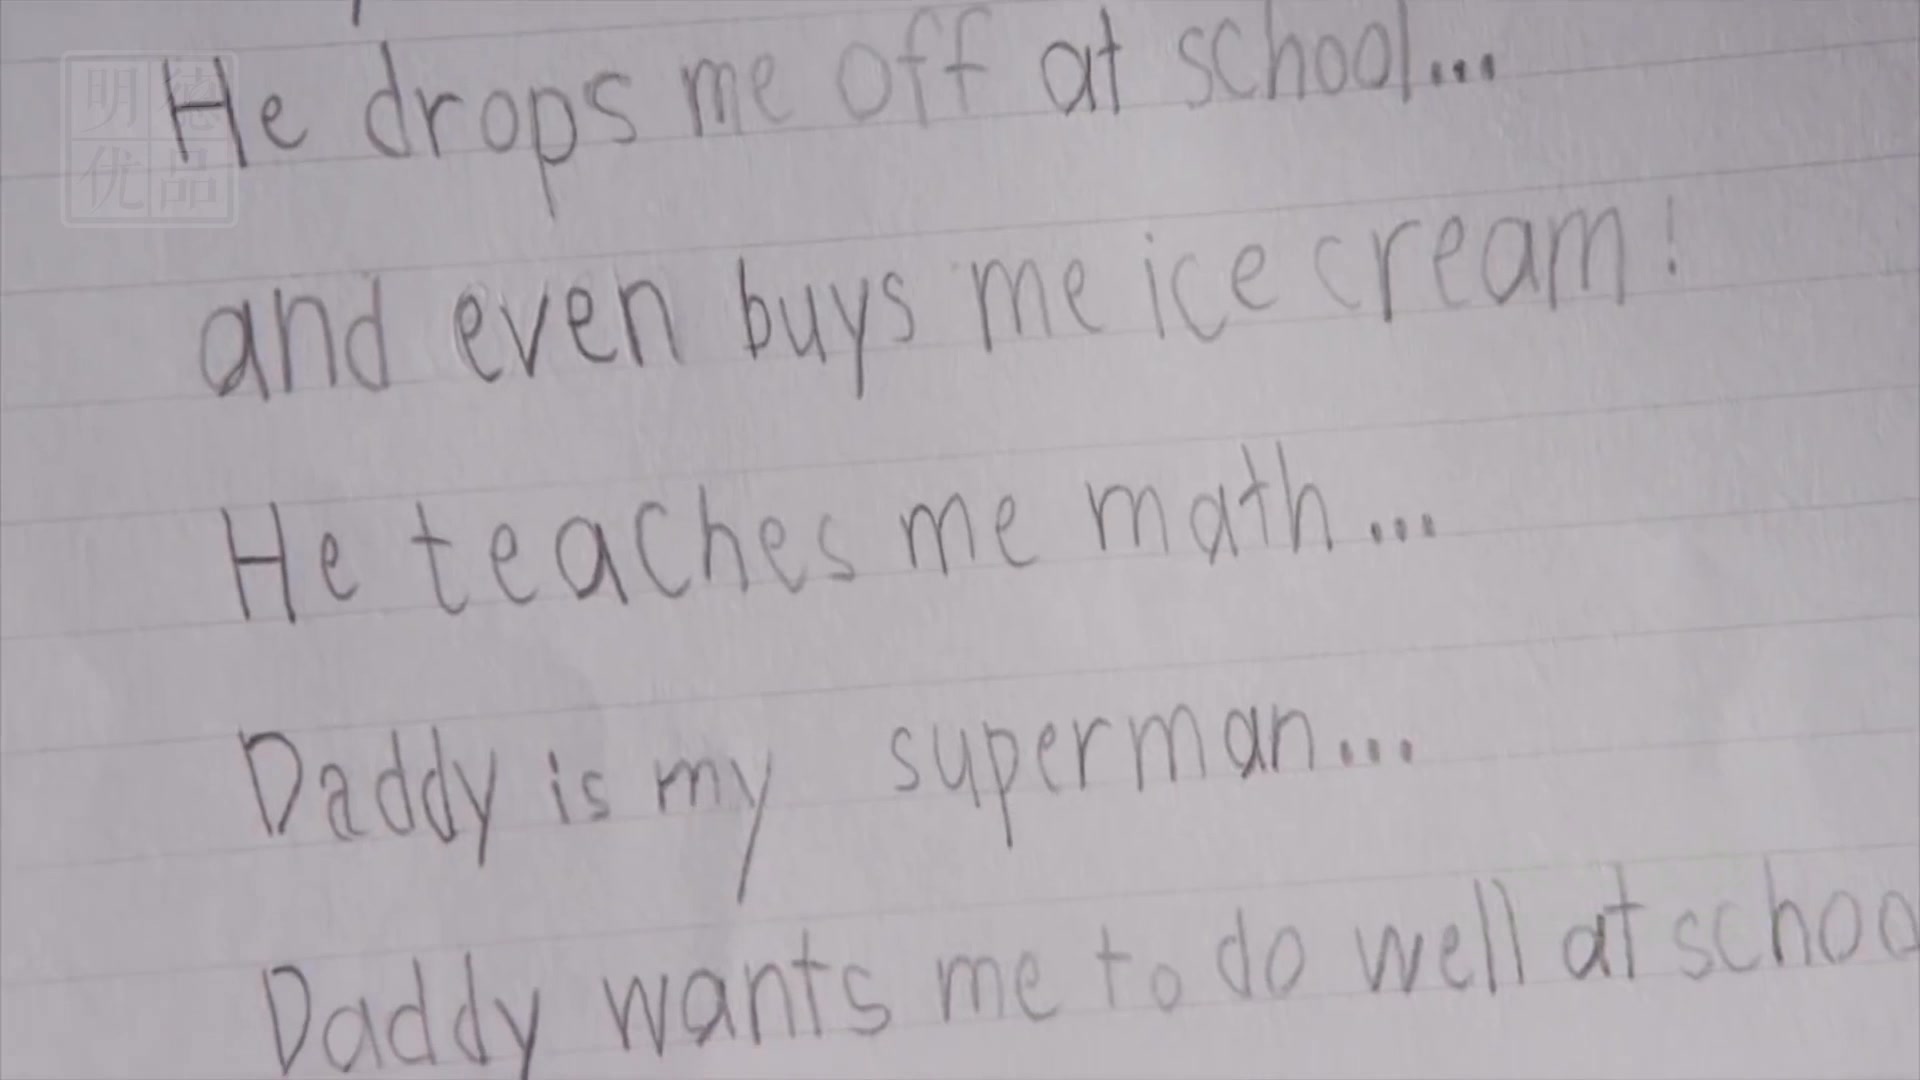 明德
优品
He drops me off at school...
and even buys me ice cream!
He teaches me math...
Daddy is my superman...
Daddy wants me to do well at schoo